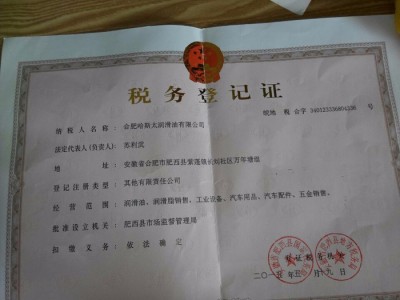 税务登记证
税 合字 340123336804288 号
纳税人名称 合肥哈斯太润滑油有限公司
法定代表人(负责人) 苏利武
地址 安徽省合肥市肥西县紫蓬镇 社区万年埠组
登记注册类型 其他有限责任公司
经营范围 润滑油、润滑脂销售、工业设备、汽车用品、汽车配件、五金销售。
批准设立机关 肥西县市场监督管理局
扣缴义务 依法确定
登记税务机关
二〇一五年